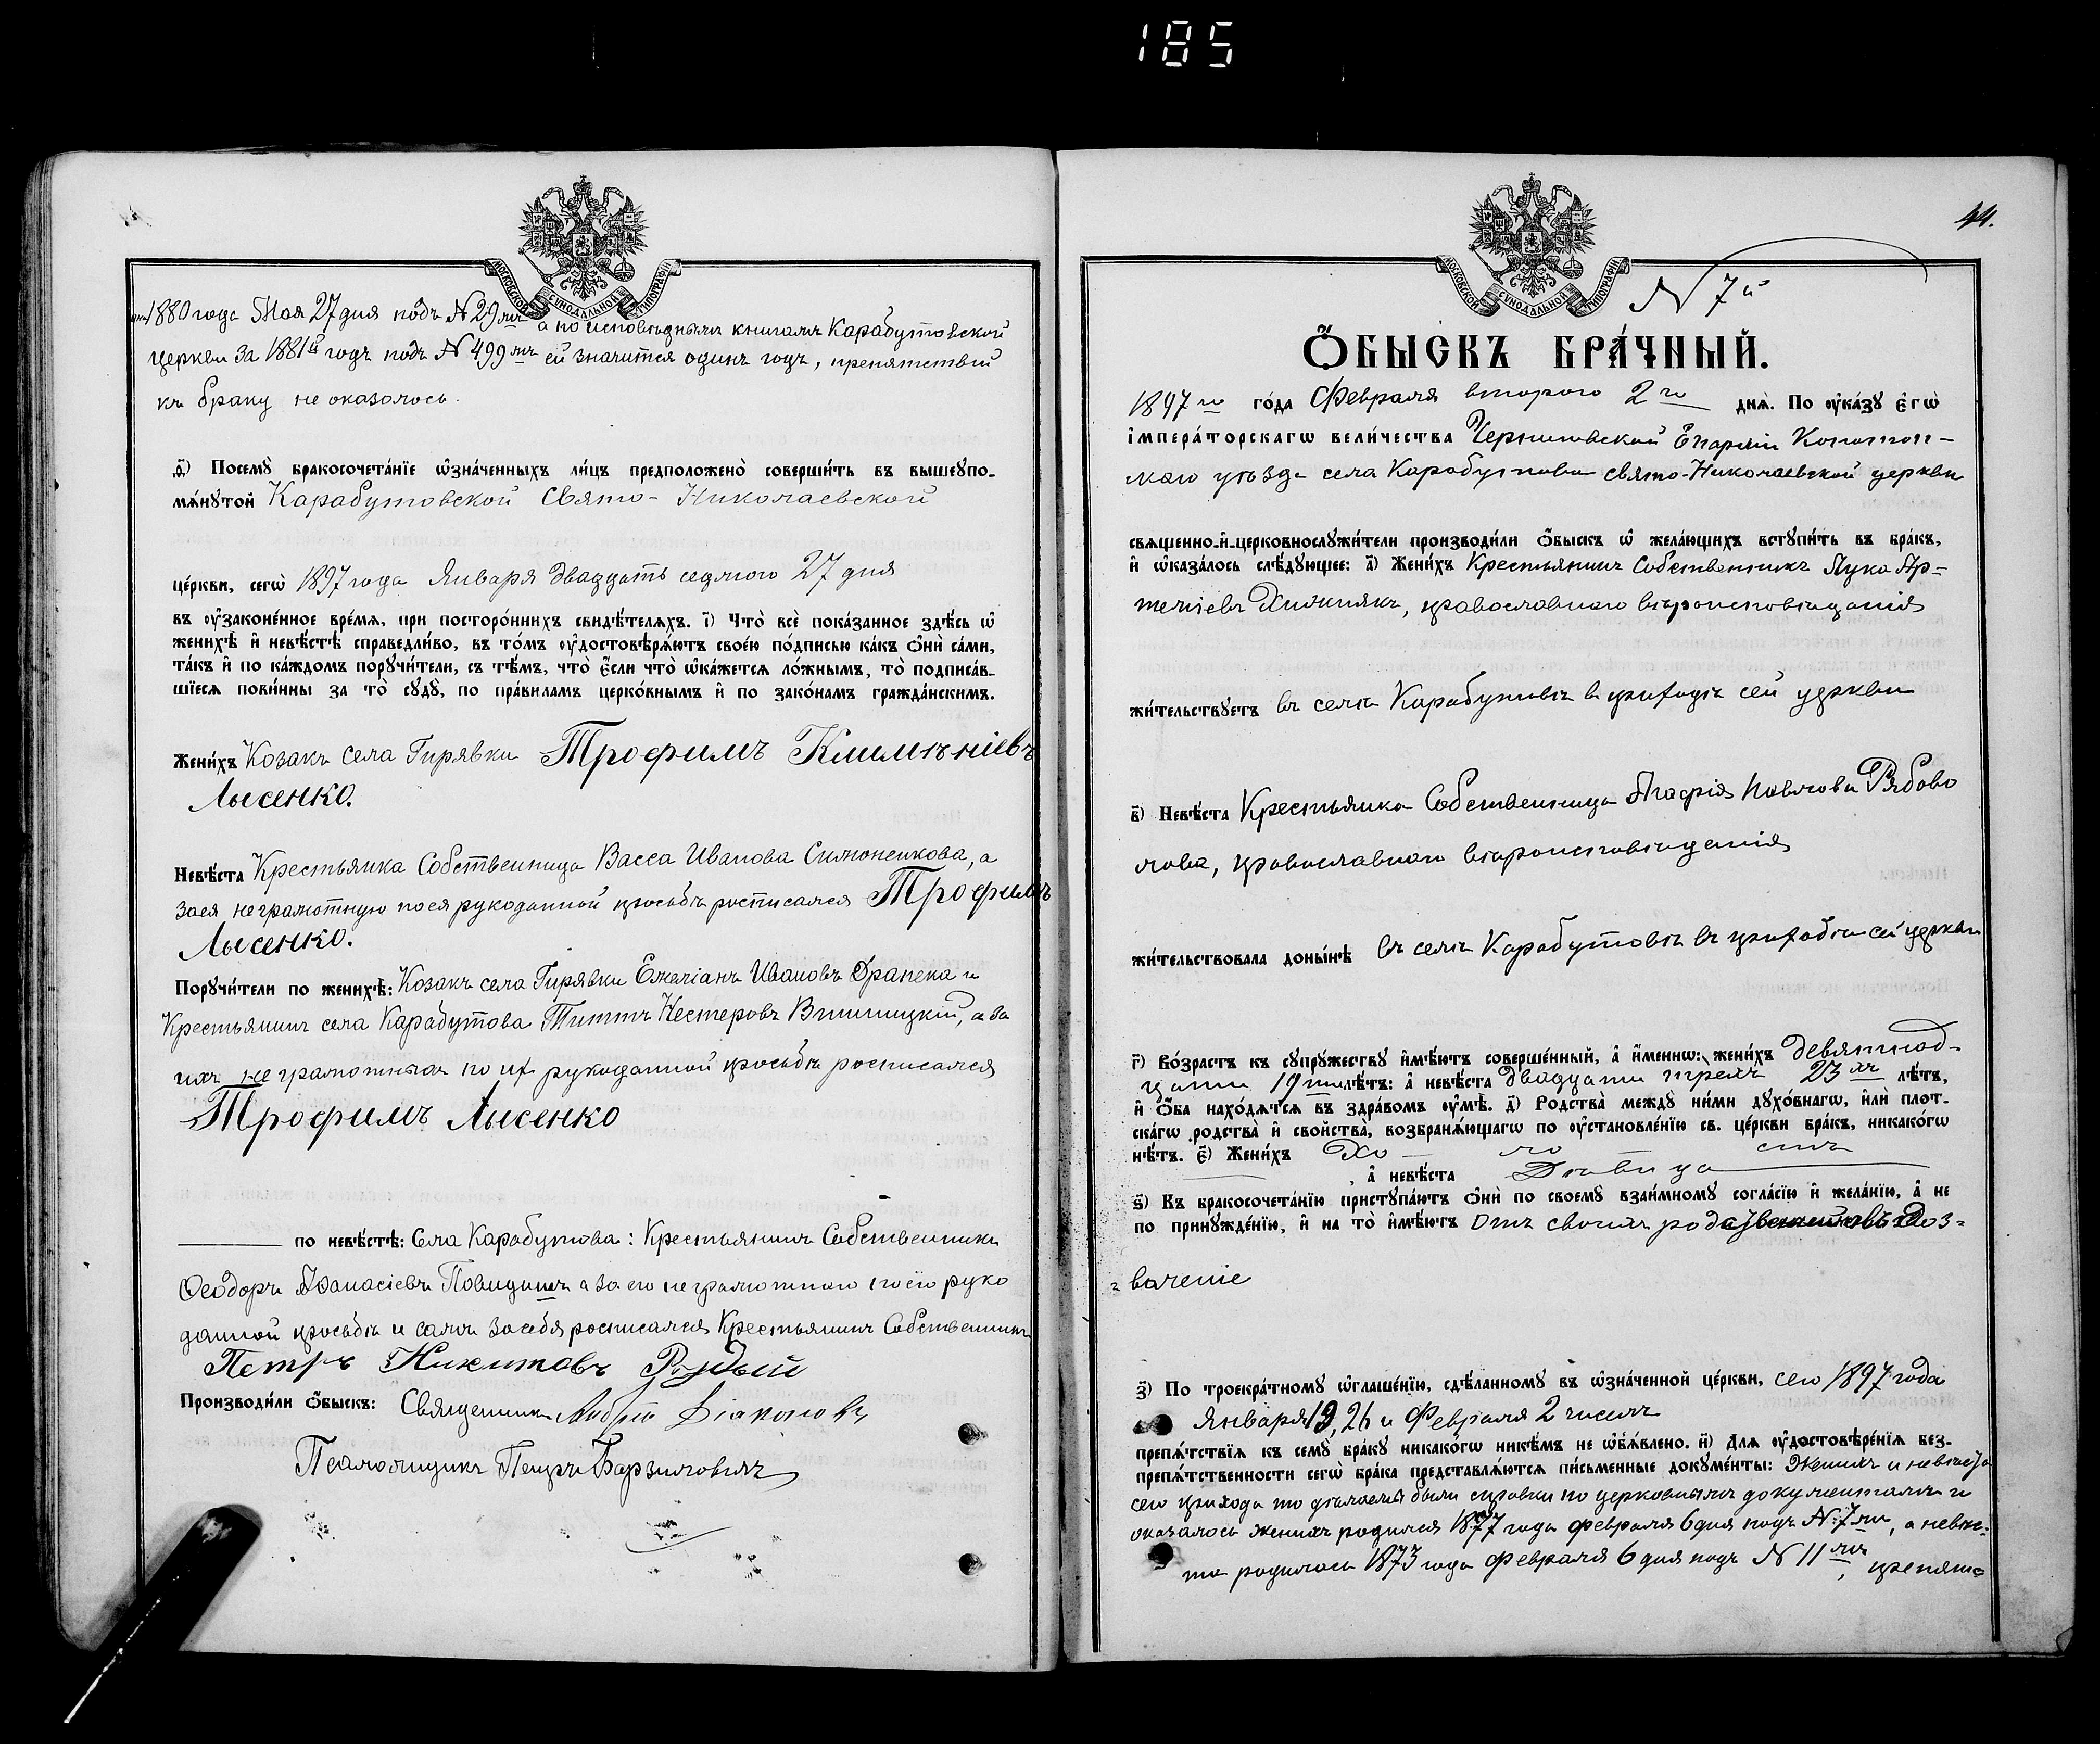 185
МОСКОВСКОЙ СѴНОДАЛЬНОЙ ТИПОГРАФІИ
1880 года Мая 27 дня подъ №29мъ а по исповѣднымъ книгамъ Карабутовской
Церкви за 1881й годъ подъ №499мъ ей значится одинъ годъ, препятствій
къ браку не оказалось.
Посемꙋ̀ бракосочета́нїе ѡ҆зна́ченныхъ ли́цъ предположено̀ соверши́ть въ вышеупо-
мѧ́нꙋтой Карабутовской Свято-Николаевской
це́ркви, сегѡ̀ 1897 года Января двадцать седмого 27 дня
въ ᲂу҆зако́не́нное вре́мѧ, при посторо́ннихъ свидѣ́телѧхъ. і҃) Что̀ всѐ пока́занное здѣ́сь ѡ҆
женихѣ̀ и҆ невѣ́стѣ справедли́во, въ то́мъ ᲂу҆достовѣрѧ́ютъ свое́ю по́дписью ка́къ ѻ҆нѝ са́ми,
та́къ и҆ по ка́ждомъ порꙋчи́тели, съ тѣ́мъ, что̀ є҆́сли что̀ ѡ҆ка́жетсѧ ло́жнымъ, то̀ подписа́в-
шїесѧ пови́нны за то̀ сꙋдꙋ̀, по пра́виламъ церко́внымъ и҆ по зако́намъ гражда́нскимъ.
Жени́хъ Козакъ села Гирявки Трофимъ Климентіевъ
Лысенко.
Невѣ́ста Крестьянка Собственница Васса Иванова Симоненкова, а
за ея неграмотную по ея рукоданной просьбѣ росписался Трофимъ
Лысенко.
Порꙋчи́тели по женихѣ̀: Козакъ села Гирявки Емеліанъ Ивановъ Драпека и
Крестьянинъ села Карабутова Титтъ Нестеровъ, а за
ихъ неграмотныхъ по их рукоданной просьбѣ росписался
Трофимъ Лысенко
по невѣ́стѣ: Села Карабутова: Крестьянинъ Собственникъ
Ѳеодоръ Аѳанасіевъ а за его неграмотного по его руко
данной просьбѣ и самъ за себя росписался Крестьянинъ Собственникъ
Петръ Никитовъ Рудый
Производи́ли ѻ҆́быскъ: Священникъ Діаконовъ
Псаломщикъ Петръ Барзиловичъ
44.
МОСКОВСКОЙ СѴНОДАЛЬНОЙ ТИПОГРАФІИ
№ 7й
Ѻ҆́БЫСКЪ БРА́ЧНЫЙ.
1897го го́да Февраля второго 2го днѧ̀. По ᲂу҆ка́зꙋ є҆гѡ̀
і҆мпера́торскагѡ вели́чества Черниговской Епархіи Конотоп-
скаго уѣзда села Карабутова свято-Николаевской церкви
свѧщенно-и҆-церковнослꙋжи́тели производи́ли ѻ҆́быскъ ѡ҆ жела́ющихъ встꙋпи́ть въ бра́къ,
и҆ ѡ҆каза́лось слѣ́дꙋющее: а҃) Жени́хъ Крестьянинъ Собственникъ Лука Ар-
теміевъ Хижнякъ, православного вѣроисповѣданія
жи́тельствꙋетъ въ селѣ Карабутовѣ в приходѣ сей церкви
в҃) Невѣ́ста Крестьянка Собственница Агафія Павлова Рябово
лова, православного вѣроисповѣданія
жи́тельствовала донынѣ въ селѣ Карабутовѣ въ приходѣ сей церкви
г҃) Во́зрастъ къ сꙋпрꙋжествꙋ и҆мѣ́ютъ соверше́нный, а҆ и҆́меннѡ: жени́хъ девятнад-
цати 19ти лѣ́тъ: а҆ невѣ́ста двадцати трехъ 23хъ лѣ́тъ,
и҆ ѻ҆́ба нахо́дѧтсѧ въ здра́вомъ ᲂу҆мѣ̀. д҃) Родства̀ междꙋ̀ ни́ми дꙋхо́внагѡ, и҆лѝ плот-
ска́гѡ родства̀ и҆ сво́йства, возбранѧ́ющагѡ по ᲂу҆становле́нїю св. це́ркви бра́къ, никако́гѡ
нѣ́тъ. є҃) Жени́хъ Хо-ло-стъ
, а҆ невѣ́ста Дѣвица
ѕ҃) Къ бракосочета́нїю пристꙋпа́ютъ ѻ҆нѝ по своемꙋ̀ взаи́мномꙋ согла́сїю и҆ жела́нїю, а҆ не
по принꙋжде́нїю, и҆ на то̀ и҆мѣ́ютъ Отъ своихъ доз-
воленіе
з҃) По троекра́тномꙋ ѡ҆глаше́нїю, сдѣ́ланномꙋ въ ѡ҆зна́ченной це́ркви, сего 1897 года
Января 19, 26 и Февраля 2 чиселъ
препѧ́тствїѧ къ семꙋ̀ бра́кꙋ никако́гѡ никѣ́мъ не ѡ҆б̾ѧ́влено. и҃) Длѧ ᲂу҆достовѣре́нїѧ без-
препѧ́тственности сегѡ̀ бра́ка представлѧ́ютсѧ пи́сьменные докꙋме́нты: Женихъ и невѣста
сего прихода то дѣланы были справки по церковнымъ документамъ и
оказалось женихъ родился 1877 года февраля 6 дня подъ №7мъ, а невѣс-
та родилась 1873 года Февраля 6 дня подъ №11мъ, препят-